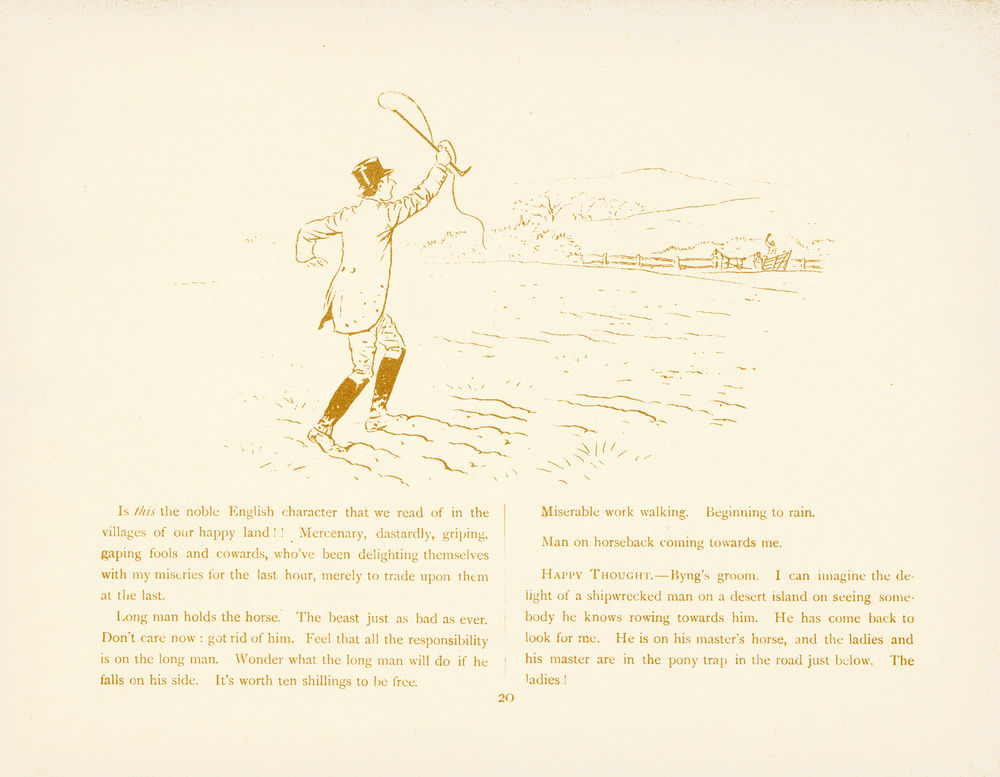 Is this the noble English character that we read of in the
villages of our happy land!! Mercenary, dastardly, griping,
gaping fools and cowards, who've been delighting themselves
with my miseries for the last hour, merely to trade upon them
at the last.
Long man holds the horse. The beast just as bad as ever.
Don't care now: got rid of him. Feel that all the responsibility
is on the long man. Wonder what the long man will do if he
falls on his side. It's worth ten shillings to be free.
Miserable work walking. Beginning to rain.
Man on horseback coming towards me.
HAPPY THOUGHT.—Byng's groom. I can imagine the de-
light of a shipwrecked man on a desert island on seeing some-
body he knows rowing towards him. He has come back to
look for me. He is on his master's horse, and the ladies and
his master are in the pony trap in the road just below. The
ladies!
20